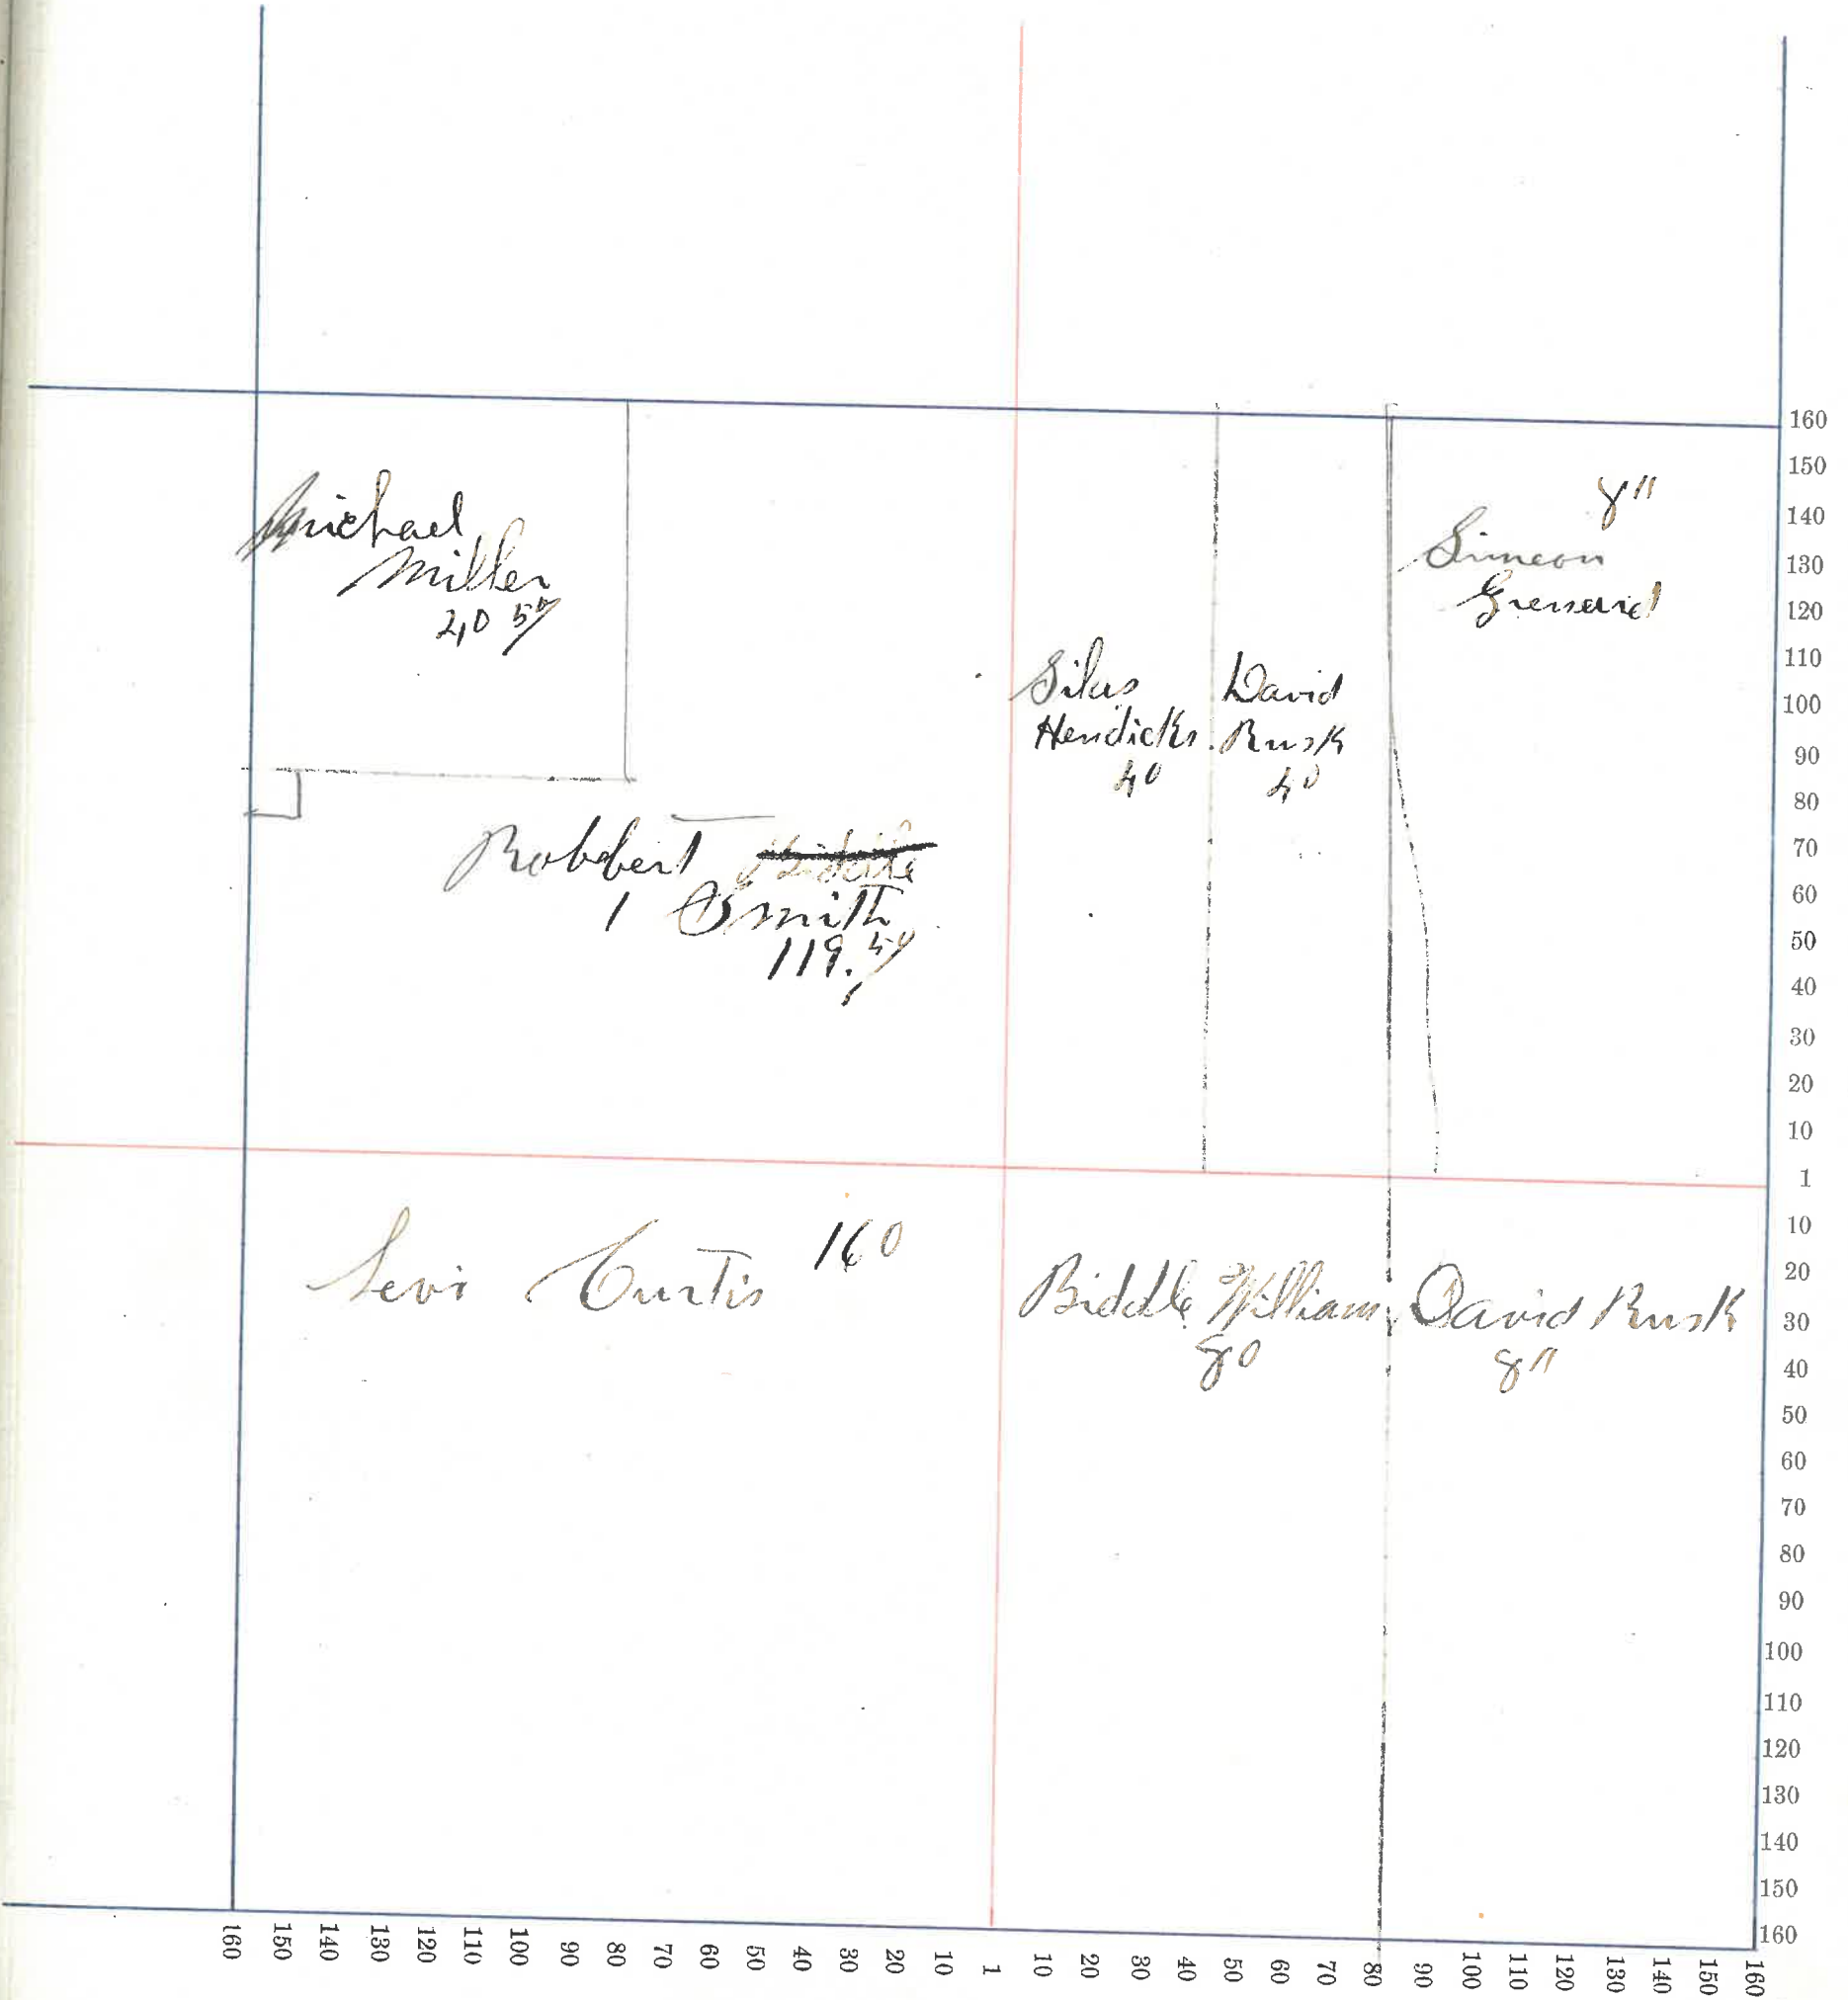 Michael
Miller
40 50
8"
Simeon
Grenard
Silas
Hendicks
40
David
Rusk
40
Robbert
1 Smith
119.50
Levi Curtis 160
Biddle William
80
David Rusk
8"
160
150
140
130
120
110
100
90
80
70
60
50
40
30
20
10
1
10
20
30
40
50
60
70
80
90
100
110
120
130
140
150
160
160 150 140 130 120 110 100 90 80 70 60 50 40 30 20 10 1 10 20 30 40 50 60 70 80 90 100 110 120 130 140 150 160